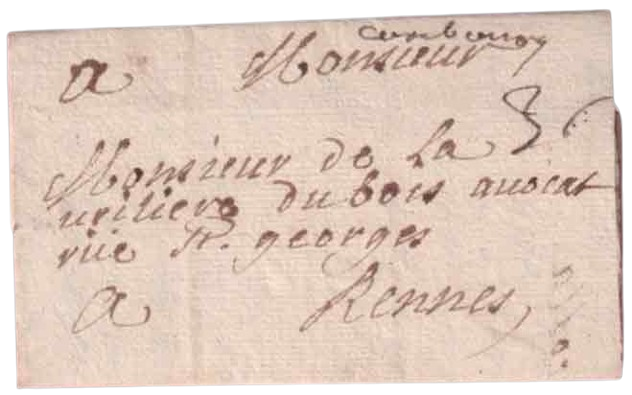 combourg
a Monsieur
3
Monsieur de La
uriliere dubois auocat
rüe St. georges
a Rennes,